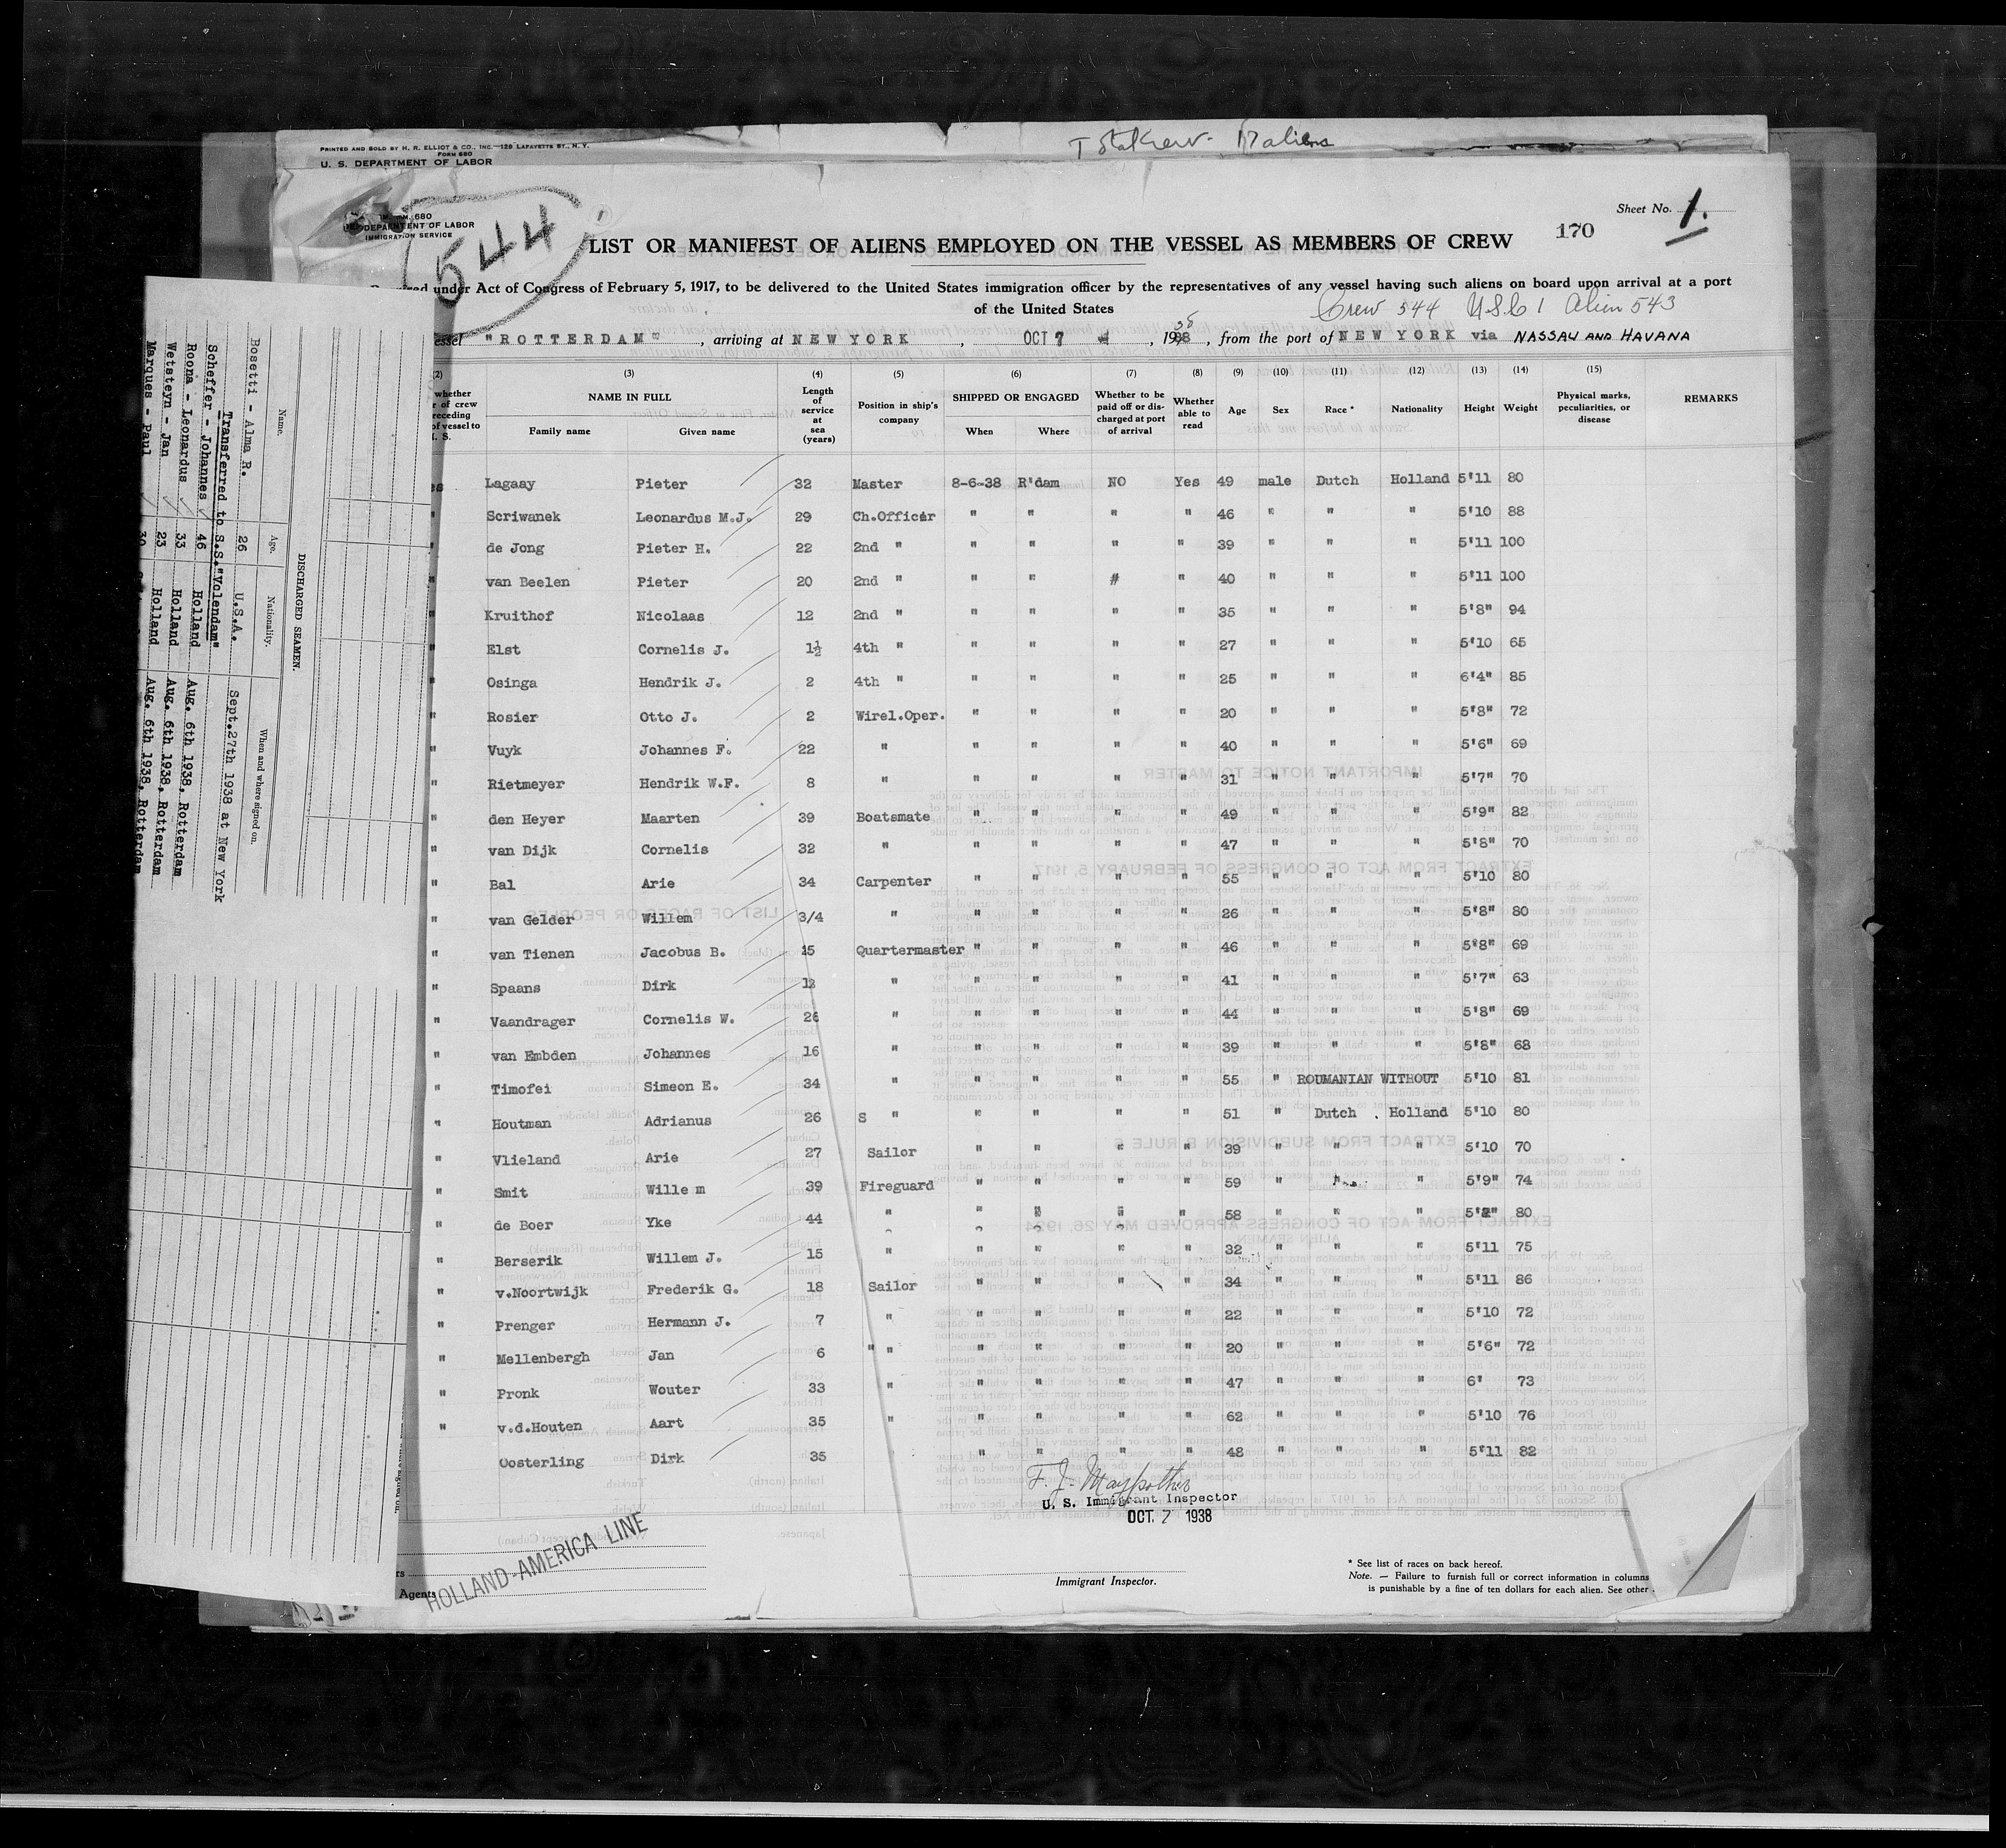 T otalcrew- 17 aliens
PRINTED AND SOLD BY H. R. ELLIOT & CO., INC.—129 LAFAYETTE ST., N. Y.
FORM 680
U. S. DEPARTMENT OF LABOR
680
DEPARTMENT OF LABOR
IMMIGRATION SERVICE
544
Sheet No. 1.
170
LIST OR MANIFEST OF ALIENS EMPLOYED ON THE VESSEL AS MEMBERS OF CREW
under Act of Congress of February 5, 1917, to be delivered to the United States immigration officer by the representatives of any vessel having such aliens on board upon arrival at a port
of the United States
Crew 544 USC 1 Alien 543
"ROTTERDAM", arriving at NEW YORK, OCT 7, 1938, from the port of NEW YORK via NASSAU AND HAVANA
(2) (3) (4) (5) (6) (7) (8) (9) (10) (11) (12) (13) (14) (15)
NAME IN FULL
Family name Given name
Length of service at sea (years)
Position in ship's company
SHIPPED OR ENGAGED
When Where
Whether to be paid off or discharged at port of arrival
Whether able to read
Age Sex Race * Nationality Height Weight
Physical marks, peculiarities, or disease
REMARKS
Lagaay Pieter 32 Master 8-6-38 R'dam NO Yes 49 male Dutch Holland 5'11 80
" Scriwanek Leonardus M.J. 29 Ch.Officer " " " " 46 " " " 5'10 88
" de Jong Pieter H. 22 2nd " " " " " 39 " " " 5'11 100
" van Beelen Pieter 20 2nd " " " # " 40 " " " 5'11 100
" Kruithof Nicolaas 12 2nd " " " " " 35 " " " 5'8" 94
" Elst Cornelis J. 1½ 4th " " " " " 27 " " " 5'10 65
" Osinga Hendrik J. 2 4th " " " " " 25 " " " 6'4" 85
" Rosier Otto J. 2 Wirel.Oper. " " " " 20 " " " 5'8" 72
" Vuyk Johannes F. 22 " " " " " 40 " " " 5'6" 69
" Rietmeyer Hendrik W.F. 8 " " " " " 31 " " " 5'7" 70
" den Heyer Maarten 39 Boatsmate " " " " 49 " " " 5'9" 82
" van Dijk Cornelis 32 " " " " " 47 " " " 5'8" 70
" Bal Arie 34 Carpenter " " " " 55 " " " 5'10 80
" van Gelder Willem 3/4 " " " " " 26 " " " 5'8" 80
" van Tienen Jacobus B. 15 Quartermaster " " " " 46 " " " 5'8" 69
" Spaans Dirk " " " " " 41 " " " 5'7" 63
" Vaandrager Cornelis W. 26 " " " " " 44 " " " 5'8" 69
" van Embden Johannes 16 " " " " " 39 " " " 5'8" 68
" Timofei Simeon E. 34 " " " " " 55 " ROUMANIAN WITHOUT 5'10 81
" Houtman Adrianus 26 S " " " " " 51 " Dutch Holland 5'10 80
" Vlieland Arie 27 Sailor " " " " 39 " " " 5'10 70
" Smit Wille m 39 Fireguard " " " " 59 " " " 5'9" 74
" de Boer Yke 44 " " " " " 58 " " " 80
" Berserik Willem J. 15 " " " " " 32 " " " 5'11 75
" v.Noortwijk Frederik G. 18 Sailor " " " " 34 " " " 5'11 86
" Prenger Hermann J. 7 " " " " " 22 " " " 5'10 72
" Mellenbergh Jan 6 " " " " " " 20 " " " 5'6" 72
" Pronk Wouter 33 " " " " " 47 " " " 6' 73
" v.d.Houten Aart 35 " " " " " 62 " " " 5'10 76
Oosterling Dirk 35 " " " " 48 " " " 5'11 82
F. J. Maypother
U. S. Immigrant Inspector
OCT. 7 1938
Immigrant Inspector.
Agents
HOLLAND-AMERICA LINE
* See list of races on back hereof.
Note. — Failure to furnish full or correct information in columns
is punishable by a fine of ten dollars for each alien. See other
DISCHARGED SEAMEN.
Name. Age. Nationality. When and where signed on.
Bosetti - Alma R. 26 U.S.A. Sept.27th 1938 at New York
Transferred to S.S."Volendam"
Scheffer - Johannes 46 Holland Aug. 6th 1938, Rotterdam
Roona - Leonardus 33 Holland Aug. 6th 1938, Rotterdam
Wetsteyn - Jan 23 Holland Aug. 6th 1938, Rotterdam
Marques - Paul 30